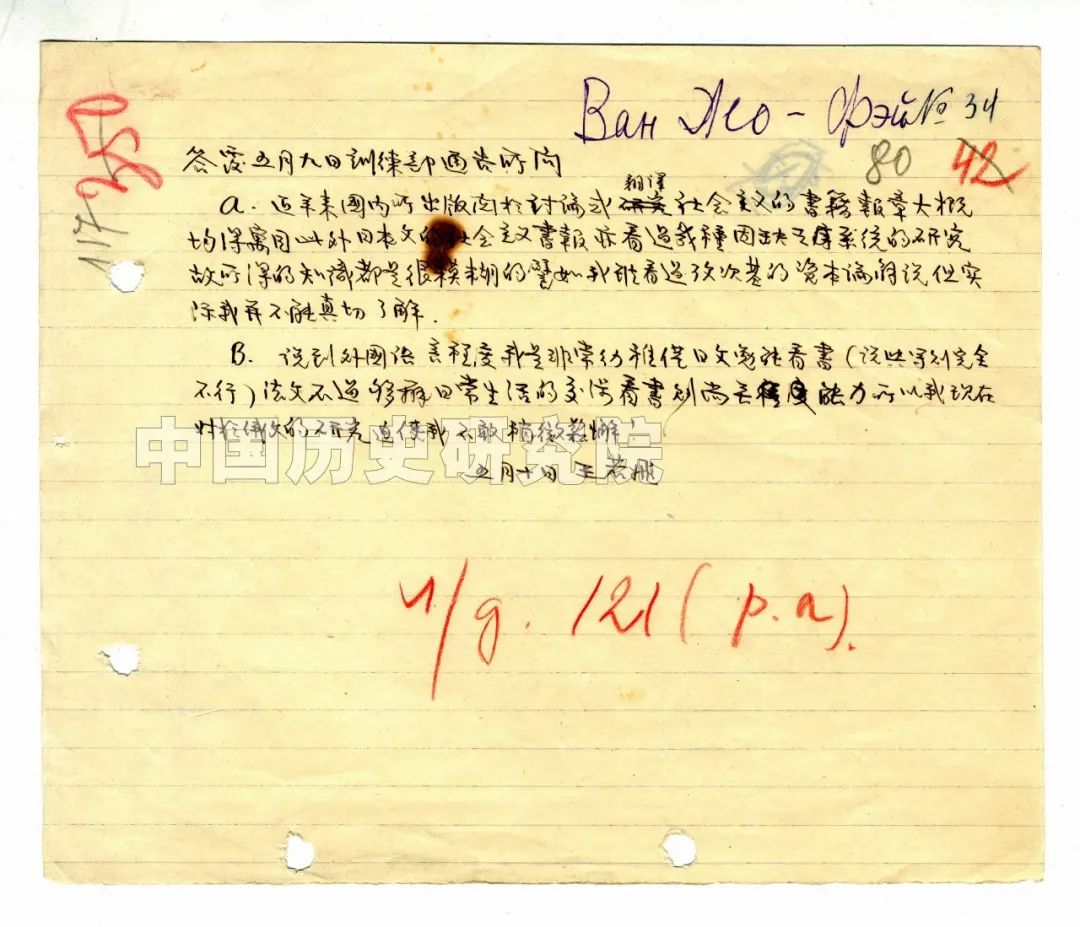 Ван Жо-Фэй № 34
80 42
117 250
答覆五月九日訓練部通告所問
翻譯
A. 近年來國內所出版関於討論或研究社会主义的書籍報章大概
均得寓目此外日本文的社会主义書報亦看過幾種因缺乏有系統的研究
故所得的知識都是很模糊的譬如我雖看過考次基的資本論解説但实
际我并不能真切了解.
B. 说到外國語言程度我是非常幼稚僅日文寛能看書(说與写則完全
不行)法文不過够辦日常生活的交涉看書則尚无程度能力所以我現在
对於俄文的研究迫使我不敢稍微荼懈!
中国历史研究院
五月十日 王若飛
и/g. 121 (р.а).